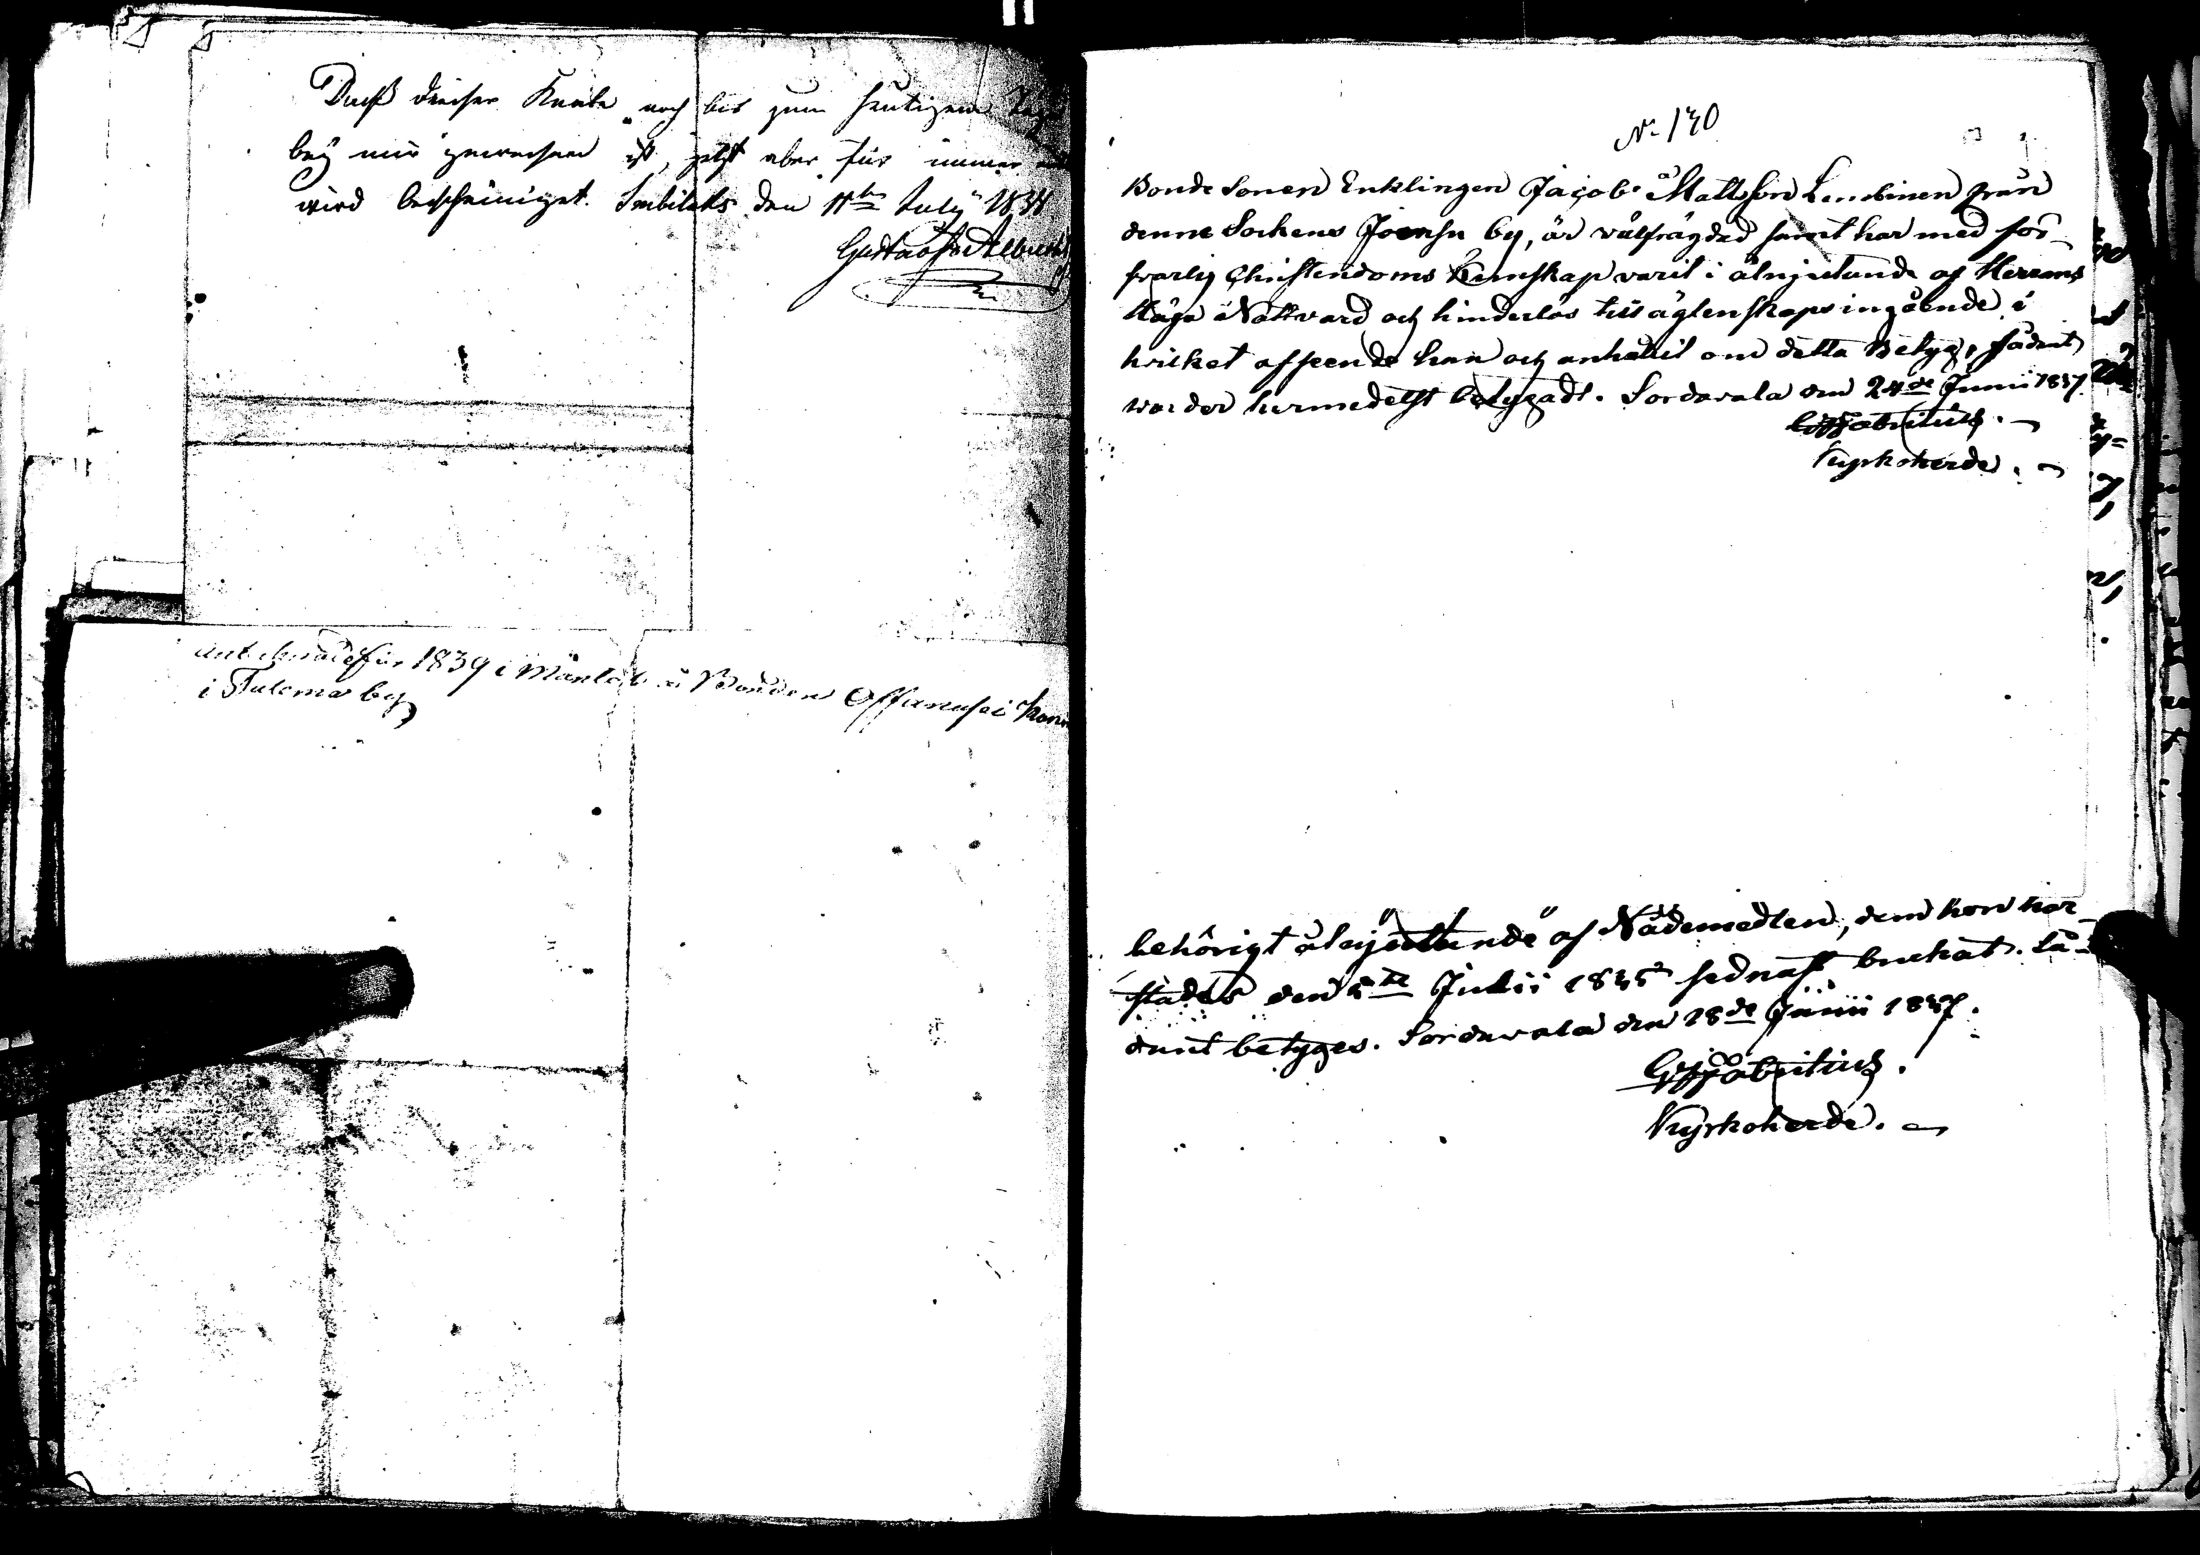 Daß dieser Knabe noch bis zum heutigem Tage
bey mir gewesen ist, jetzt aber für immer
wird bescheiniget. Imbilaks den 11ten July 1838
Gustav Albrecht
antecknad för 1839 i Mantal å Bonden Offanasei
i Tulema by
No 170
Bonde Sonen Enklingen Jacob Mattsson Lembinen från
denne Sockens Joensu by, är välfrägdad samt har med för-
svarlig Christendoms Kunskap varit i åtnjutande af Herrans
Höga Nattvard och hinderlös till ägtenskaps ingående i
hvilket afseende han och anhållit om detta Betyg, sådant
warder hermedelst betygadt. Sordavala den 24de Junii 1837.
Fabritius.
Kyrkoherde.
behörigt åtnjutande af Nådemedlen, dem hon här-
städes den 5te Julii 1835 sednast brukat. Så-
dant betyges. Sordavala den 18de Junii 1837.
Fabritius.
Kyrkoherde.